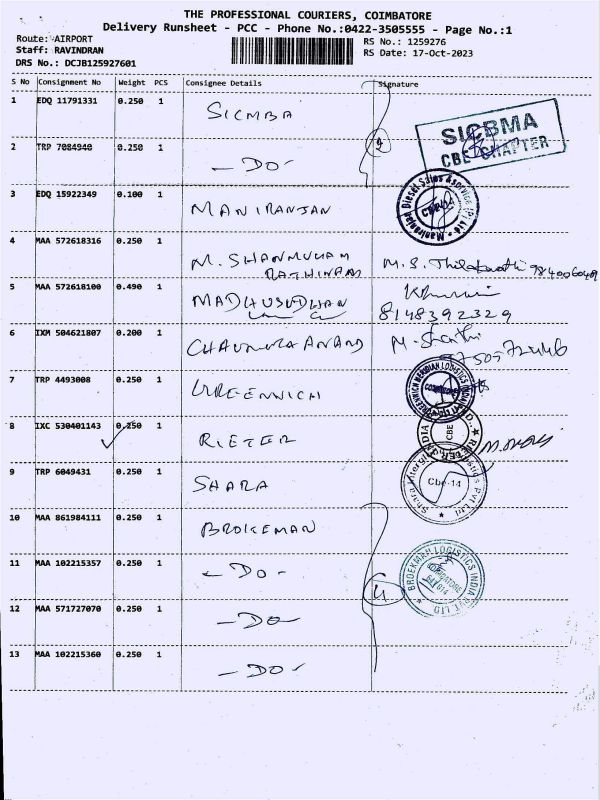 THE PROFESSIONAL COURIERS, COIMBATORE
Delivery Runsheet - PCC - Phone No.:0422-3505555 - Page No.:1
Route: AIRPORT RS No.: 1259276
Staff: RAVINDRAN RS Date: 17-Oct-2023
DRS No.: DCJB125927601
S No Consignment No Weight PCS Consignee Details Signature
1 EDQ 11791331 0.250 1 SICMBA
SICBMA
CBE CHAPTER
2 TRP 7084940 0.250 1 - DO - 2
3 EDQ 15922349 0.100 1 MANIRANJAN
Maniranjan Diesel Sales & Service (P) Ltd
4 MAA 572618316 0.250 1 M. SHANMUGAM
RATHINAM M.S. 9840060409
5 MAA 572618100 0.490 1 MADHUSUDHAN
8148392329
6 IXM 504621807 0.200 1 ANAND M. Shanthi
7 TRP 4493008 0.250 1 GREENWICH
GREENWICH MERIDIAN LOGISTICS
8 IXC 530401143 0.250 1 RIETER
RIETER INDIA CBE
9 TRP 6049431 0.250 1 SHARA
Cbe-14
10 MAA 861984111 0.250 1 BROKEMAN
11 MAA 102215357 0.250 1 - DO -
BROEKMAN LOGISTICS INDIA PVT LTD
COIMBATORE
641 014
12 MAA 571727070 0.250 1 - DO - 4
13 MAA 102215360 0.250 1 - DO -